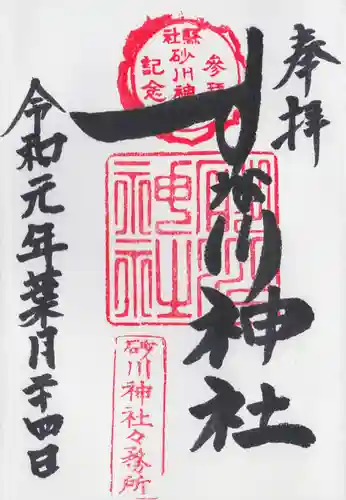 奉拝
縣社
砂川神社
参拝
記念
砂川神社
砂川神社
令和元年葉月廿四日
砂川神社々務所